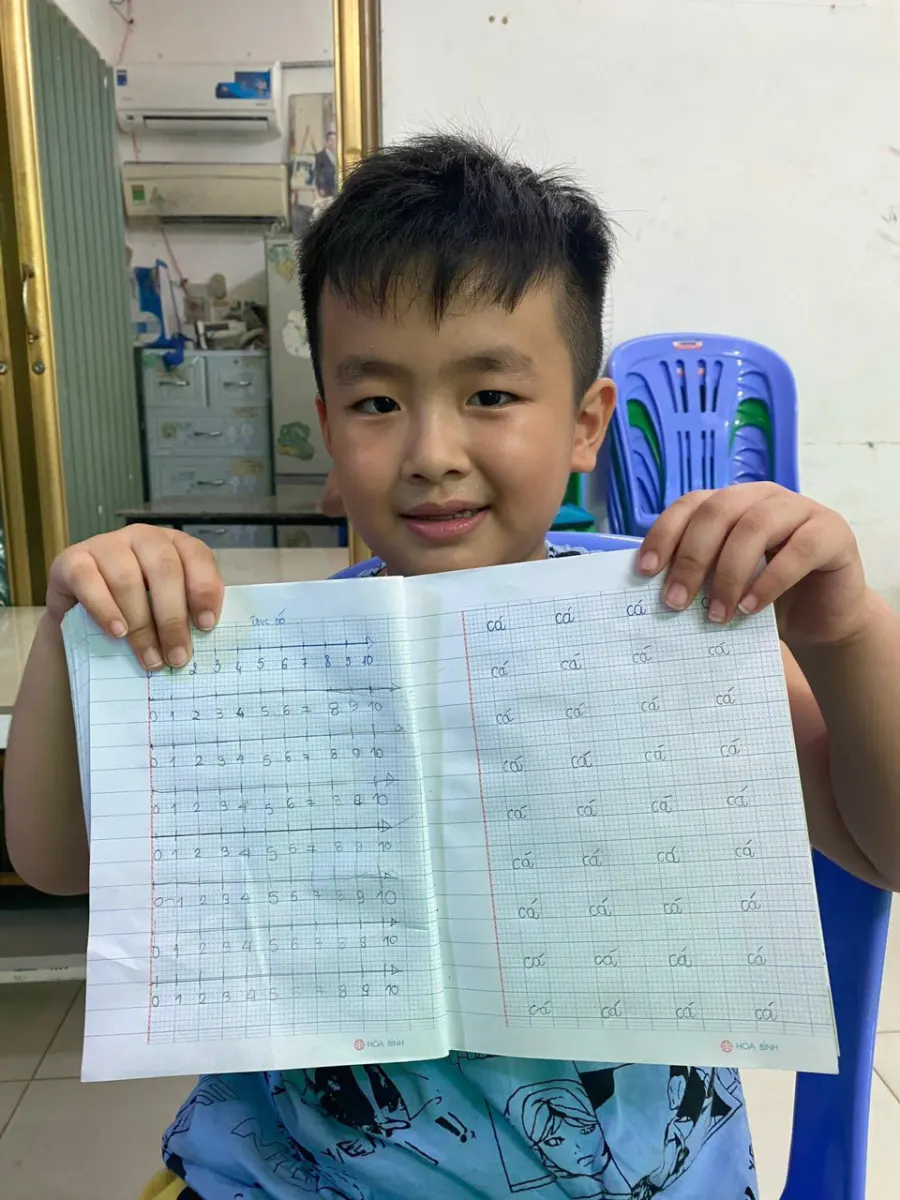 Trục số
2 3 4 5 6 7 8 9 10
0 1 2 3 4 5 6 7 8 9 10
0 1 2 3 4 5 6 7 8 9 10
0 1 2 3 4 5 6 7 8 9 10
0 1 2 3 4 5 6 7 8 9 10
0 1 2 3 4 5 6 7 8 9 10
0 1 2 3 4 5 6 7 8 9 10
0 1 2 3 4 5 6 7 8 9 10
HÒA BÌNH
cá cá cá
cá cá cá cá
cá cá cá cá
cá cá cá cá
cá cá cá cá
cá cá cá cá
cá cá cá cá
cá cá cá cá
cá cá cá cá
HÒA BÌNH
YEAH